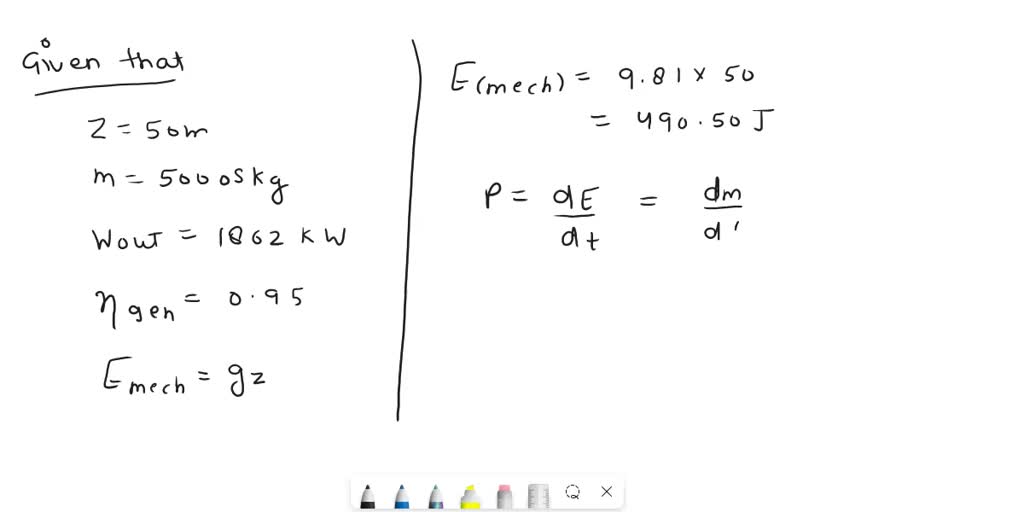 Given that
Z = 50m
m = 5000 skg
Wout = 1862 KW
η gen = 0.95
Emech = gz
E(mech) = 9.81 x 50
= 490.50 J
P = dE/dt = dm/d'